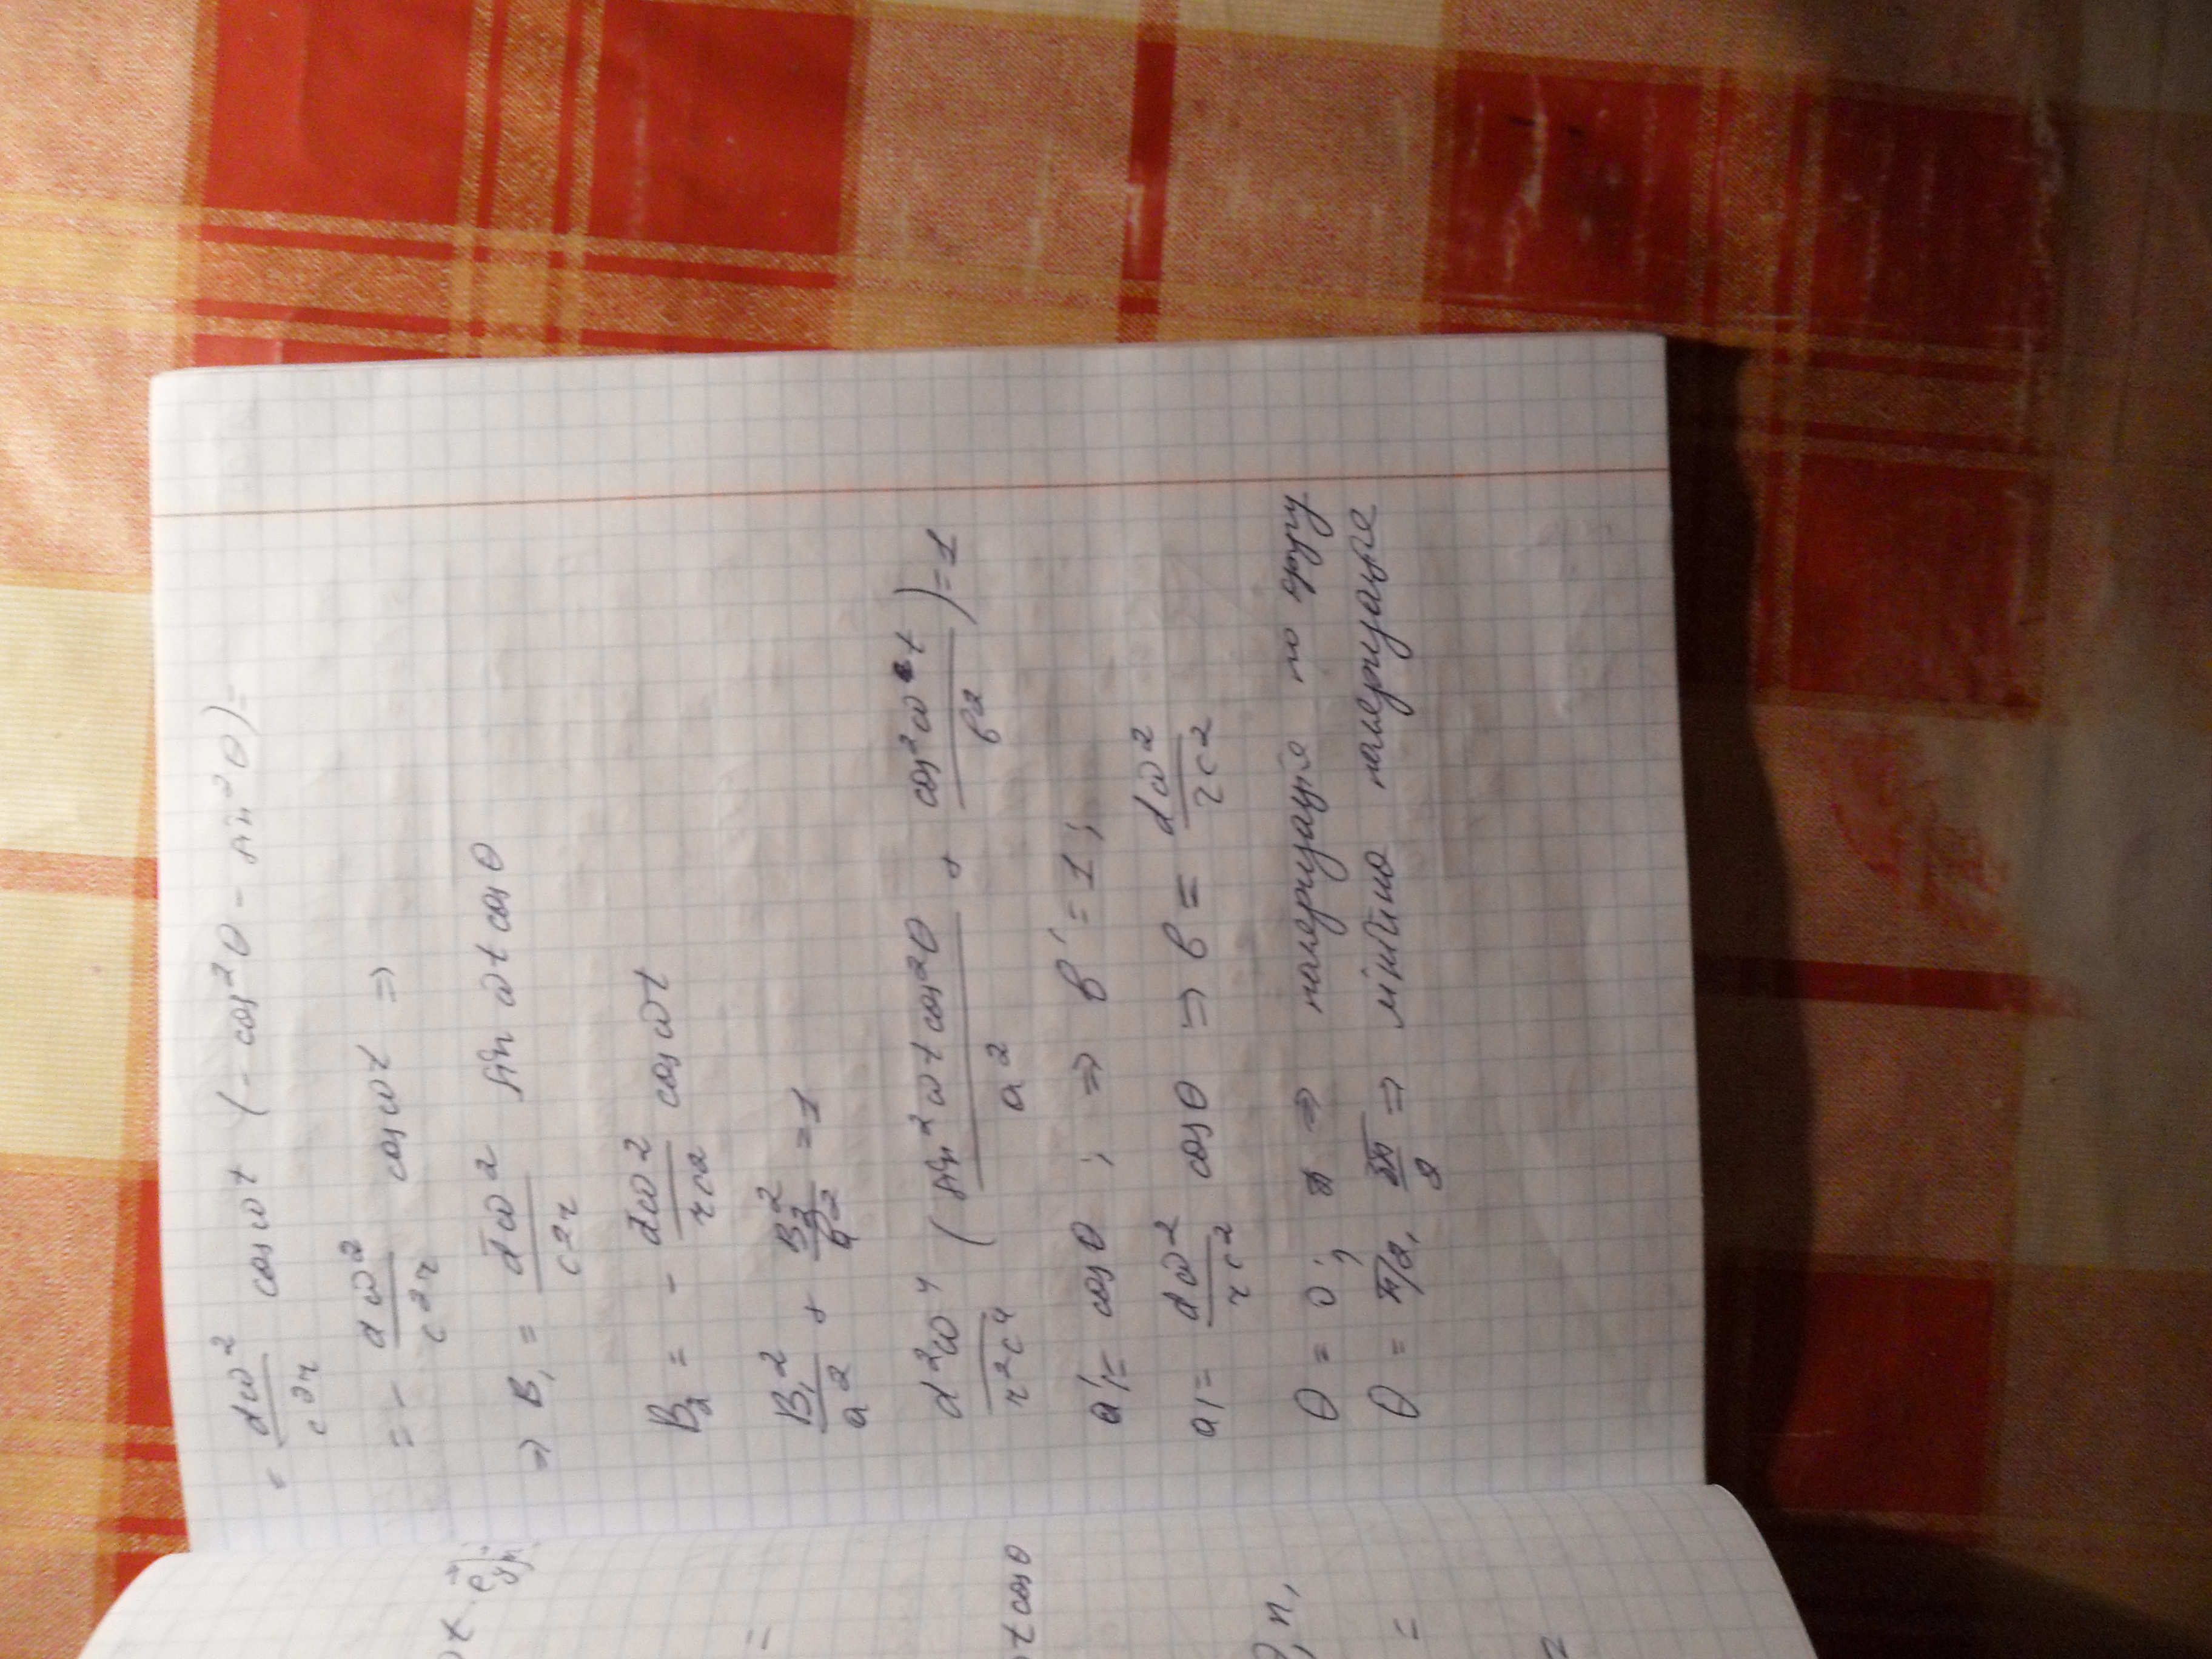 = dω²/c²r cos ωt (- cos²θ - sin²θ) =
= - dω²/c²r cos ωt ⇒
⇒ B₁ = dω²/c²r sin ωt cos θ
B₂ = - dω²/rc² cos ωt
B₁²/a² + B₂²/b² = 1
d²ω⁴/r²c⁴ ( sin²ωt cos²θ/a² + cos²ωt/b² ) = 1
a' = cos θ ; ⇒ b' = 1 ;
a = dω²/rc² cos θ ⇒ b = dω²/rc²
θ = 0 ; π ⇒ поляризація по кругу
θ = π/2, 3π/2 ⇒ лінійно поляризація
t cos θ